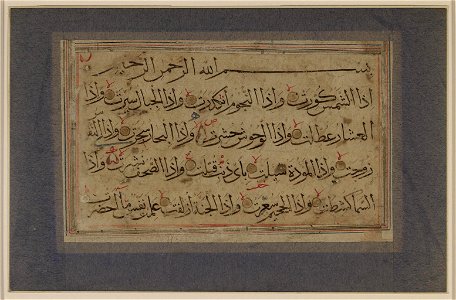 بسم الله الرحمن الرحيم
اذا الشمس كورت واذا النجوم انكدرت واذا الجبال سيرت واذا
العشار عطلت واذا الوحوش حشرت واذا البحار سجرت واذا النفوس
زوجت واذا الموءدة سئلت باي ذنب قتلت واذا الصحف نشرت واذا
السماء كشطت واذا الجحيم سعرت واذا الجنة ازلفت علمت نفس ما احضرت